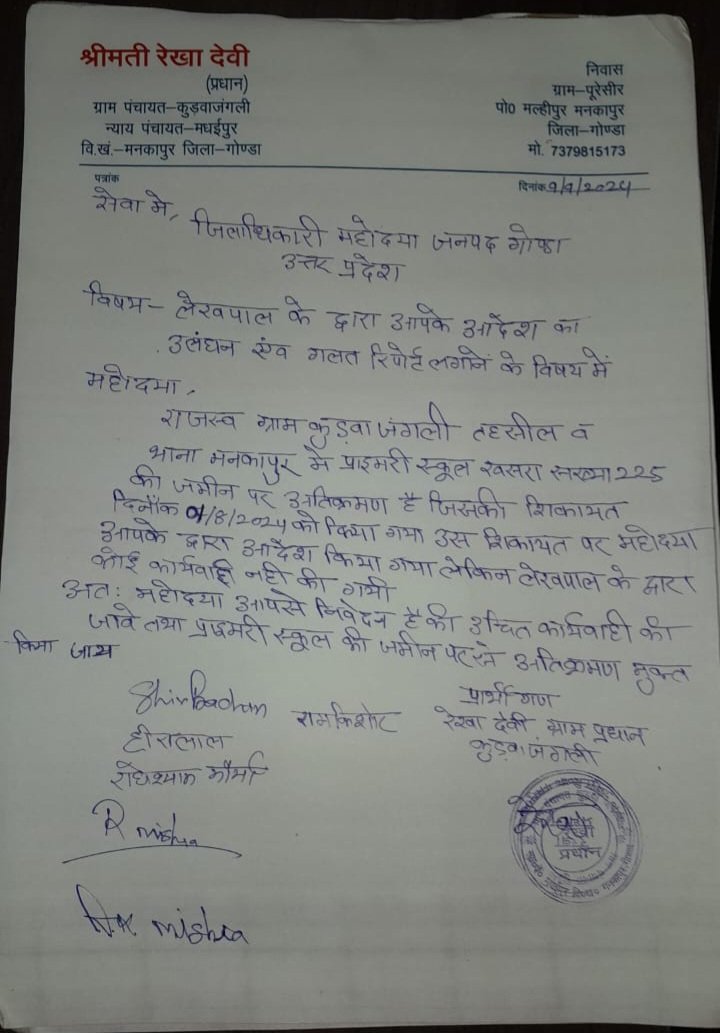 श्रीमती रेखा देवी
(प्रधान)
ग्राम पंचायत–कुड़वाजंगली
न्याय पंचायत–मधईपुर
वि.खं.–मनकापुर जिला–गोण्डा
निवास
ग्राम–पूरेसीर
पो0 मल्हीपुर मनकापुर
जिला–गोण्डा
मो. 7379815173
पत्रांक
दिनांक 9/9/2024
सेवा मे,
जिलाधिकारी महोदया जनपद गोण्डा
उत्तर प्रदेश
विषय– लेखपाल के द्वारा आपके आदेश का
उलंघन एंव गलत रिपोर्ट लगाने के विषय में
महोदया,
राजस्व ग्राम कुड़वा जंगली तहसील व
थाना मनकापुर मे प्राइमरी स्कूल खसरा संख्या 225
की जमीन पर अतिक्रमण है जिसकी शिकायत
दिनाँक /8/2024 को किया गया उस शिकायत पर महोदया
आपके द्वारा आदेश किया गया लेकिन लेखपाल के द्वारा
कोई कार्यवाही नही की गयी
अतः महोदया आपसे निवेदन है की उचित कार्यवाही की
जावे तथा प्राइमरी स्कूल की जमीन अतिक्रमण मुक्त
किया जाय
प्रार्थीगण
ShivBachan रामकिशोर रेखा देवी ग्राम प्रधान
हीरालाल कुड़वा जंगली
राधेश्याम मौर्या
R mishra
mishra
प्रधान